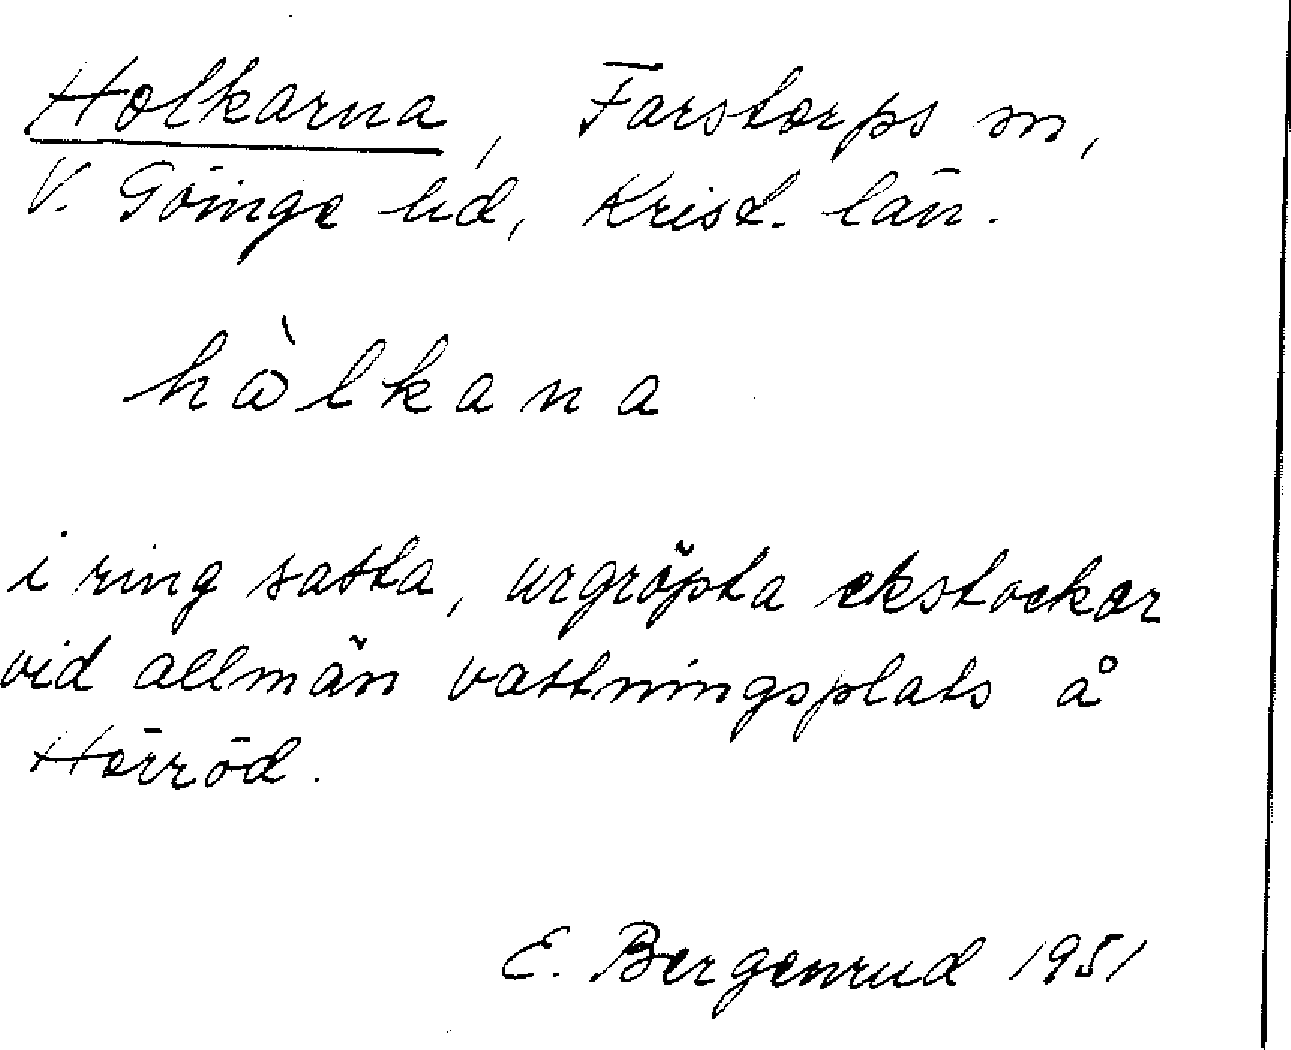 Holkarna, Farstorps sn,
V. Göinge hd, Krist. län.
hò̀lkana
i ring satta, urgröpta ekstockar
vid allmän vattningsplats å
Hörröd.
E. Bergenrud 1951